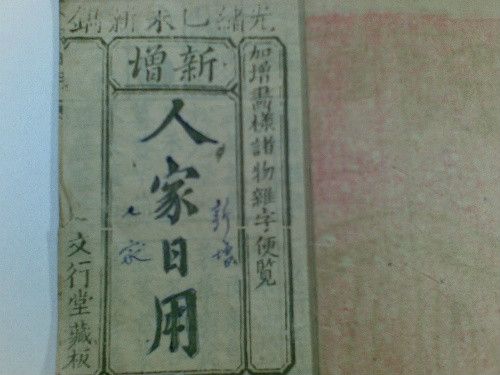 光緒己未新鐫
新增
加增畵樣諸物雜字便覧
人家日用
新增
人家
文行堂藏板